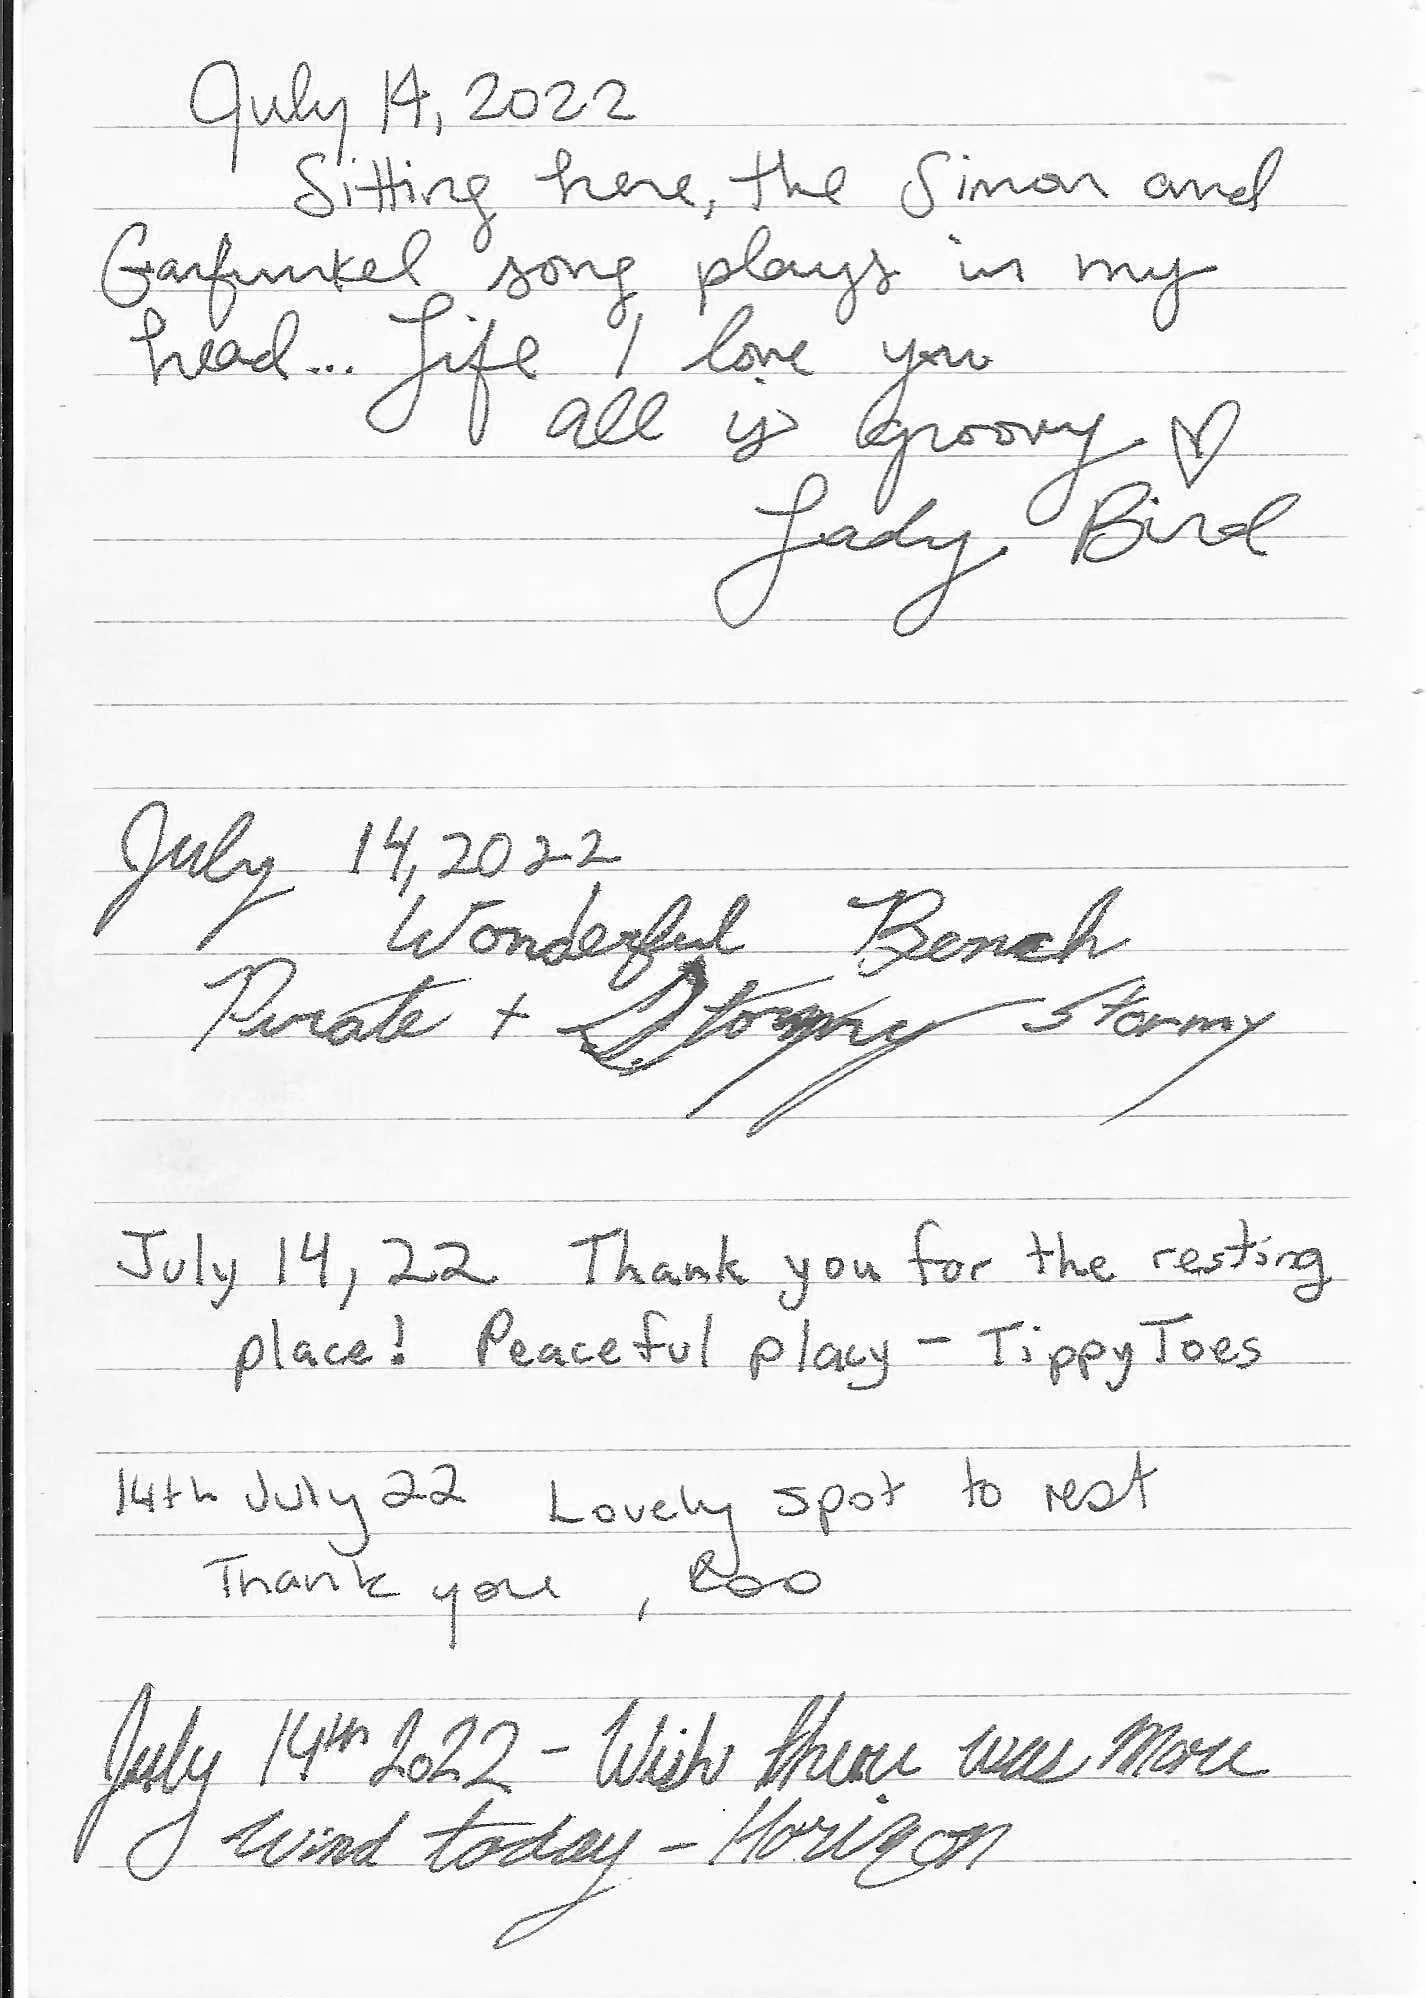 July 14, 2022
Sitting here, the Simon and
Garfunkel song plays in my
head... Life I love you
all is groovy ♡
Lady Bird
July 14, 2022
Wonderful Bench
Pirate + Stormy Stormy
July 14, 22 Thank you for the resting
place! Peaceful placy - TippyToes
14th July 22 Lovely spot to rest
Thank you, Roo
July 14th 2022 - Wish there was more
wind today - Horizon